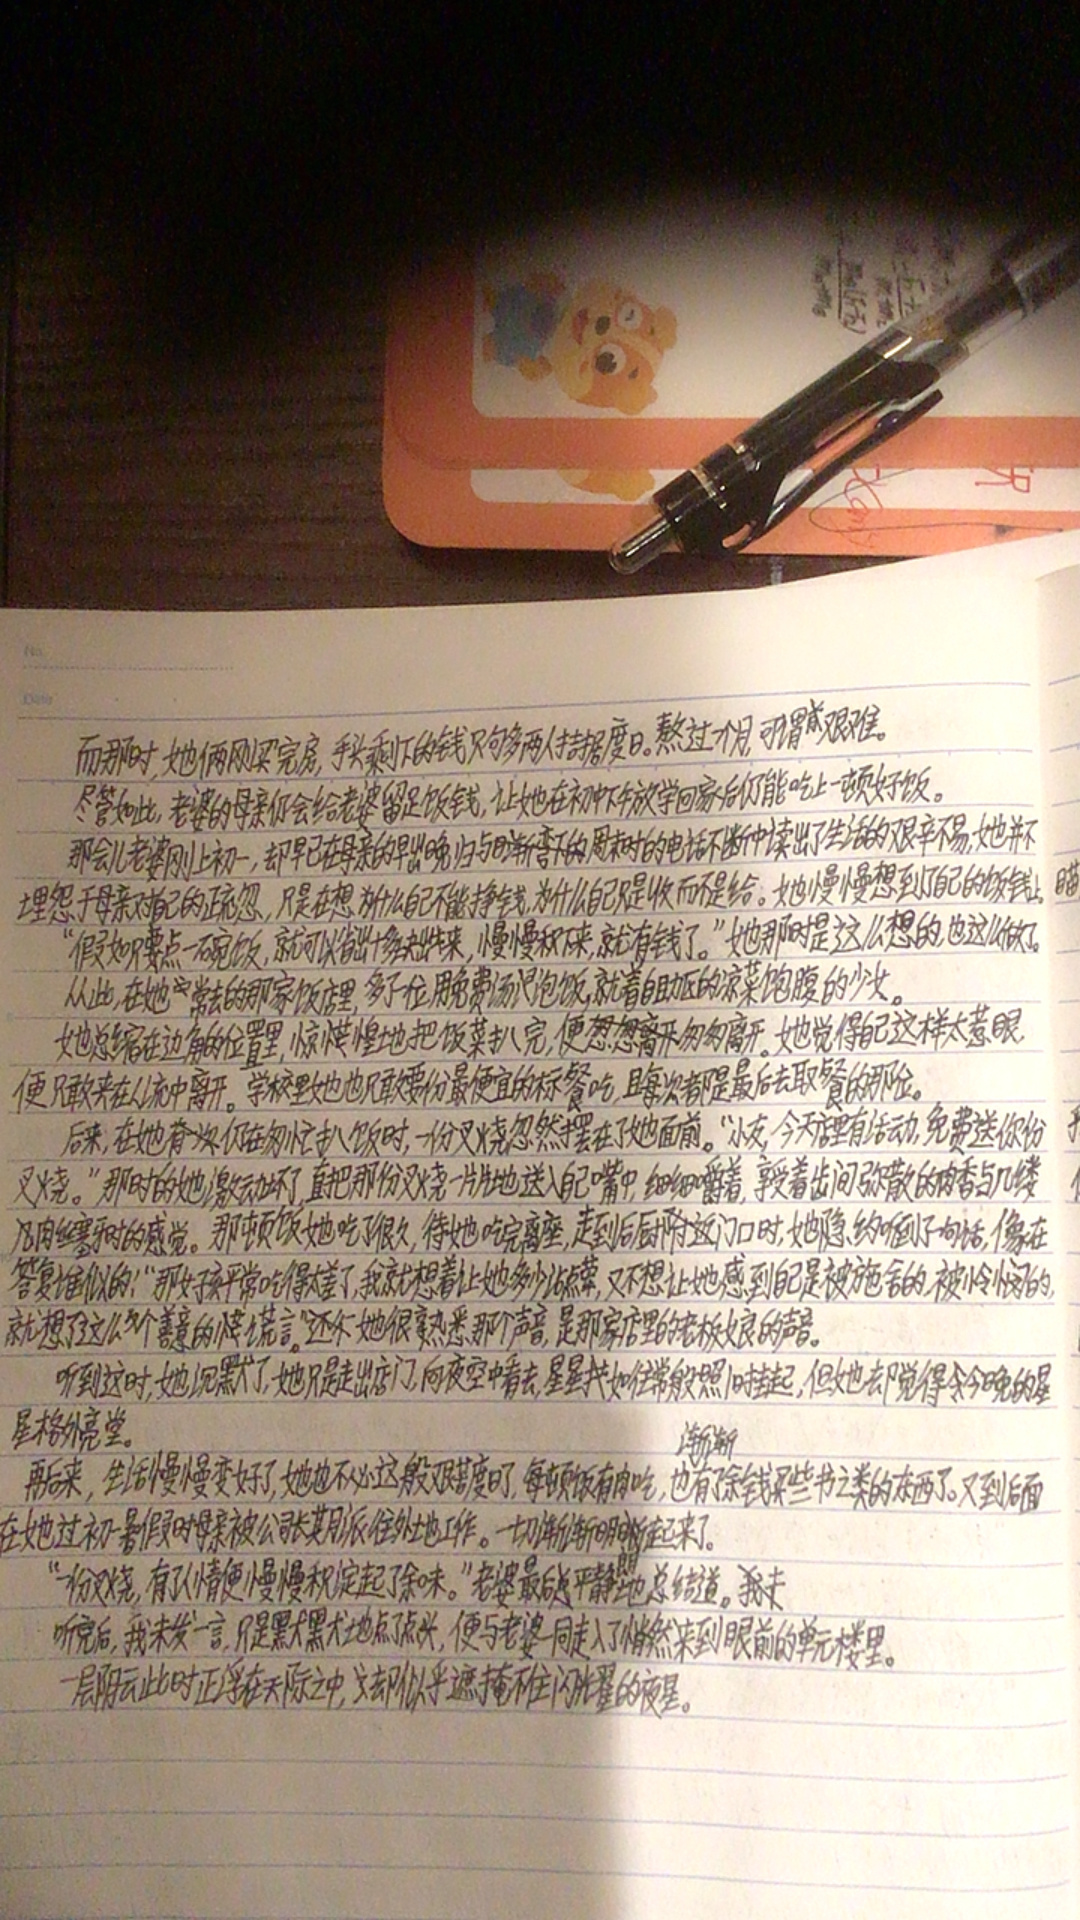 No.
Date
而那时，她俩刚买完房，手头剩下的钱只够多两人拮据度日。熬过一个月，可谓甚艰难。
尽管如此，老婆的母亲仍会给老婆留足饭钱，让她在初中下午放学回家后仍能吃上一顿好饭。
那会儿老婆刚上初一，却早已在母亲的早出晚归与周末时的电话不断中读出了生活的艰辛不易，她并不
埋怨于母亲对自己的疏忽，只是在想为什么自己不能挣钱，为什么自己只是收而不是给。她慢慢想到了自己的饭钱上。
“假如只要点一碗饭，就可以省出十多块出来，慢慢积下来，就有钱了。”她那时是这么想的，也这么做了。
从此，在她常去的那家饭店里，多了一位用免费汤泡饭，就着自助区的凉菜饱腹的少女。
她总缩在边角的位置里，惊惶地把饭菜扒完，便匆匆离开。她觉得自己这样太惹眼，
便只敢夹在人流中离开。学校里她也只敢要份最便宜的标餐吃，且每次都是最后去取餐的那位。
后来，在她有一次仍在匆忙扒饭时，一份叉烧忽然摆在了她面前。“小友，今天店里有活动，免费送你份
叉烧。”那时的她激动坏了，直把那份叉烧一片片地送入自己嘴中，细细嚼着，享受着齿间弥散的肉香与几缕
肉丝塞牙时的感觉。那顿饭她吃了很久，待她吃完离座，走到后厨附近门口时，她隐约听到了一句话，像在
答复谁似的：“那女孩平常吃得太差了，我就想着让她多少沾点荤，又不想让她感到自己是被施舍的，被怜悯的，
就想了这么个善意的谎言。”她很熟悉那个声音，是那家店里的老板娘的声音。
听到这时，她沉默了，她只是走出店门，向夜空中看去，星星如往常般照旧挂起，但她却觉得今晚的星
星格外亮堂。
渐渐
再后来，生活慢慢变好了，她也不必这般艰苦度日了，每顿饭有肉吃，也有了余钱买些书之类的东西了。又到后面
在她过初一暑假时母亲被公司长期派往外地工作。一切渐渐明晰起来了。
“一份叉烧，有了人情便慢慢积淀起了余味。”老婆最后平静地总结道。我未
听完后，我未发一言，只是默默地点了点头，便与老婆一同走入了悄然来到眼前的单元楼里。
一层阴云此时正浮在天际之中，却似乎遮掩不住闪耀的夜星。